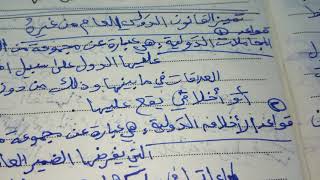 تمييز القانون الدولي العام عن غيره
قواعد المجاملات الدولية: هي عبارة عن مجموعة من
عليها الدول على سبيل
العلاقات في ما بينها وذلك من دون
أي أخلاقي يقع عليها.
② قواعد الأخلاق الدولية: هي عبارة عن مجموعة
التي يفرضها الضمير العا